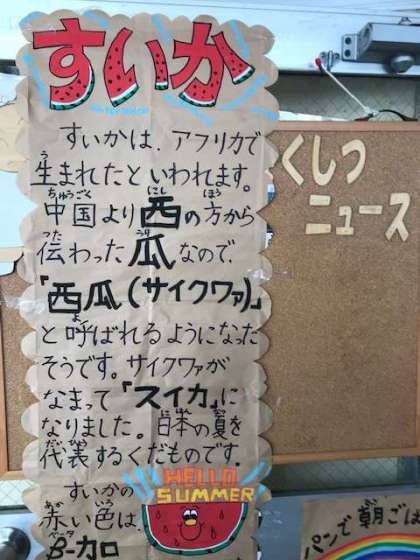 すいか
すいかは、アフリカで
生まれたといわれます。
中国より西の方から
伝わった瓜なので、
「西瓜(サイクワァ)」
と呼ばれるようになった
そうです。サイクワァが
なまって「スイカ」に
なりました。日本の夏を
代表するくだものです。
HELLO
SUMMER
すいかの
赤い色は、
β-カロ
くしつ
ニュース
パンで朝ごは